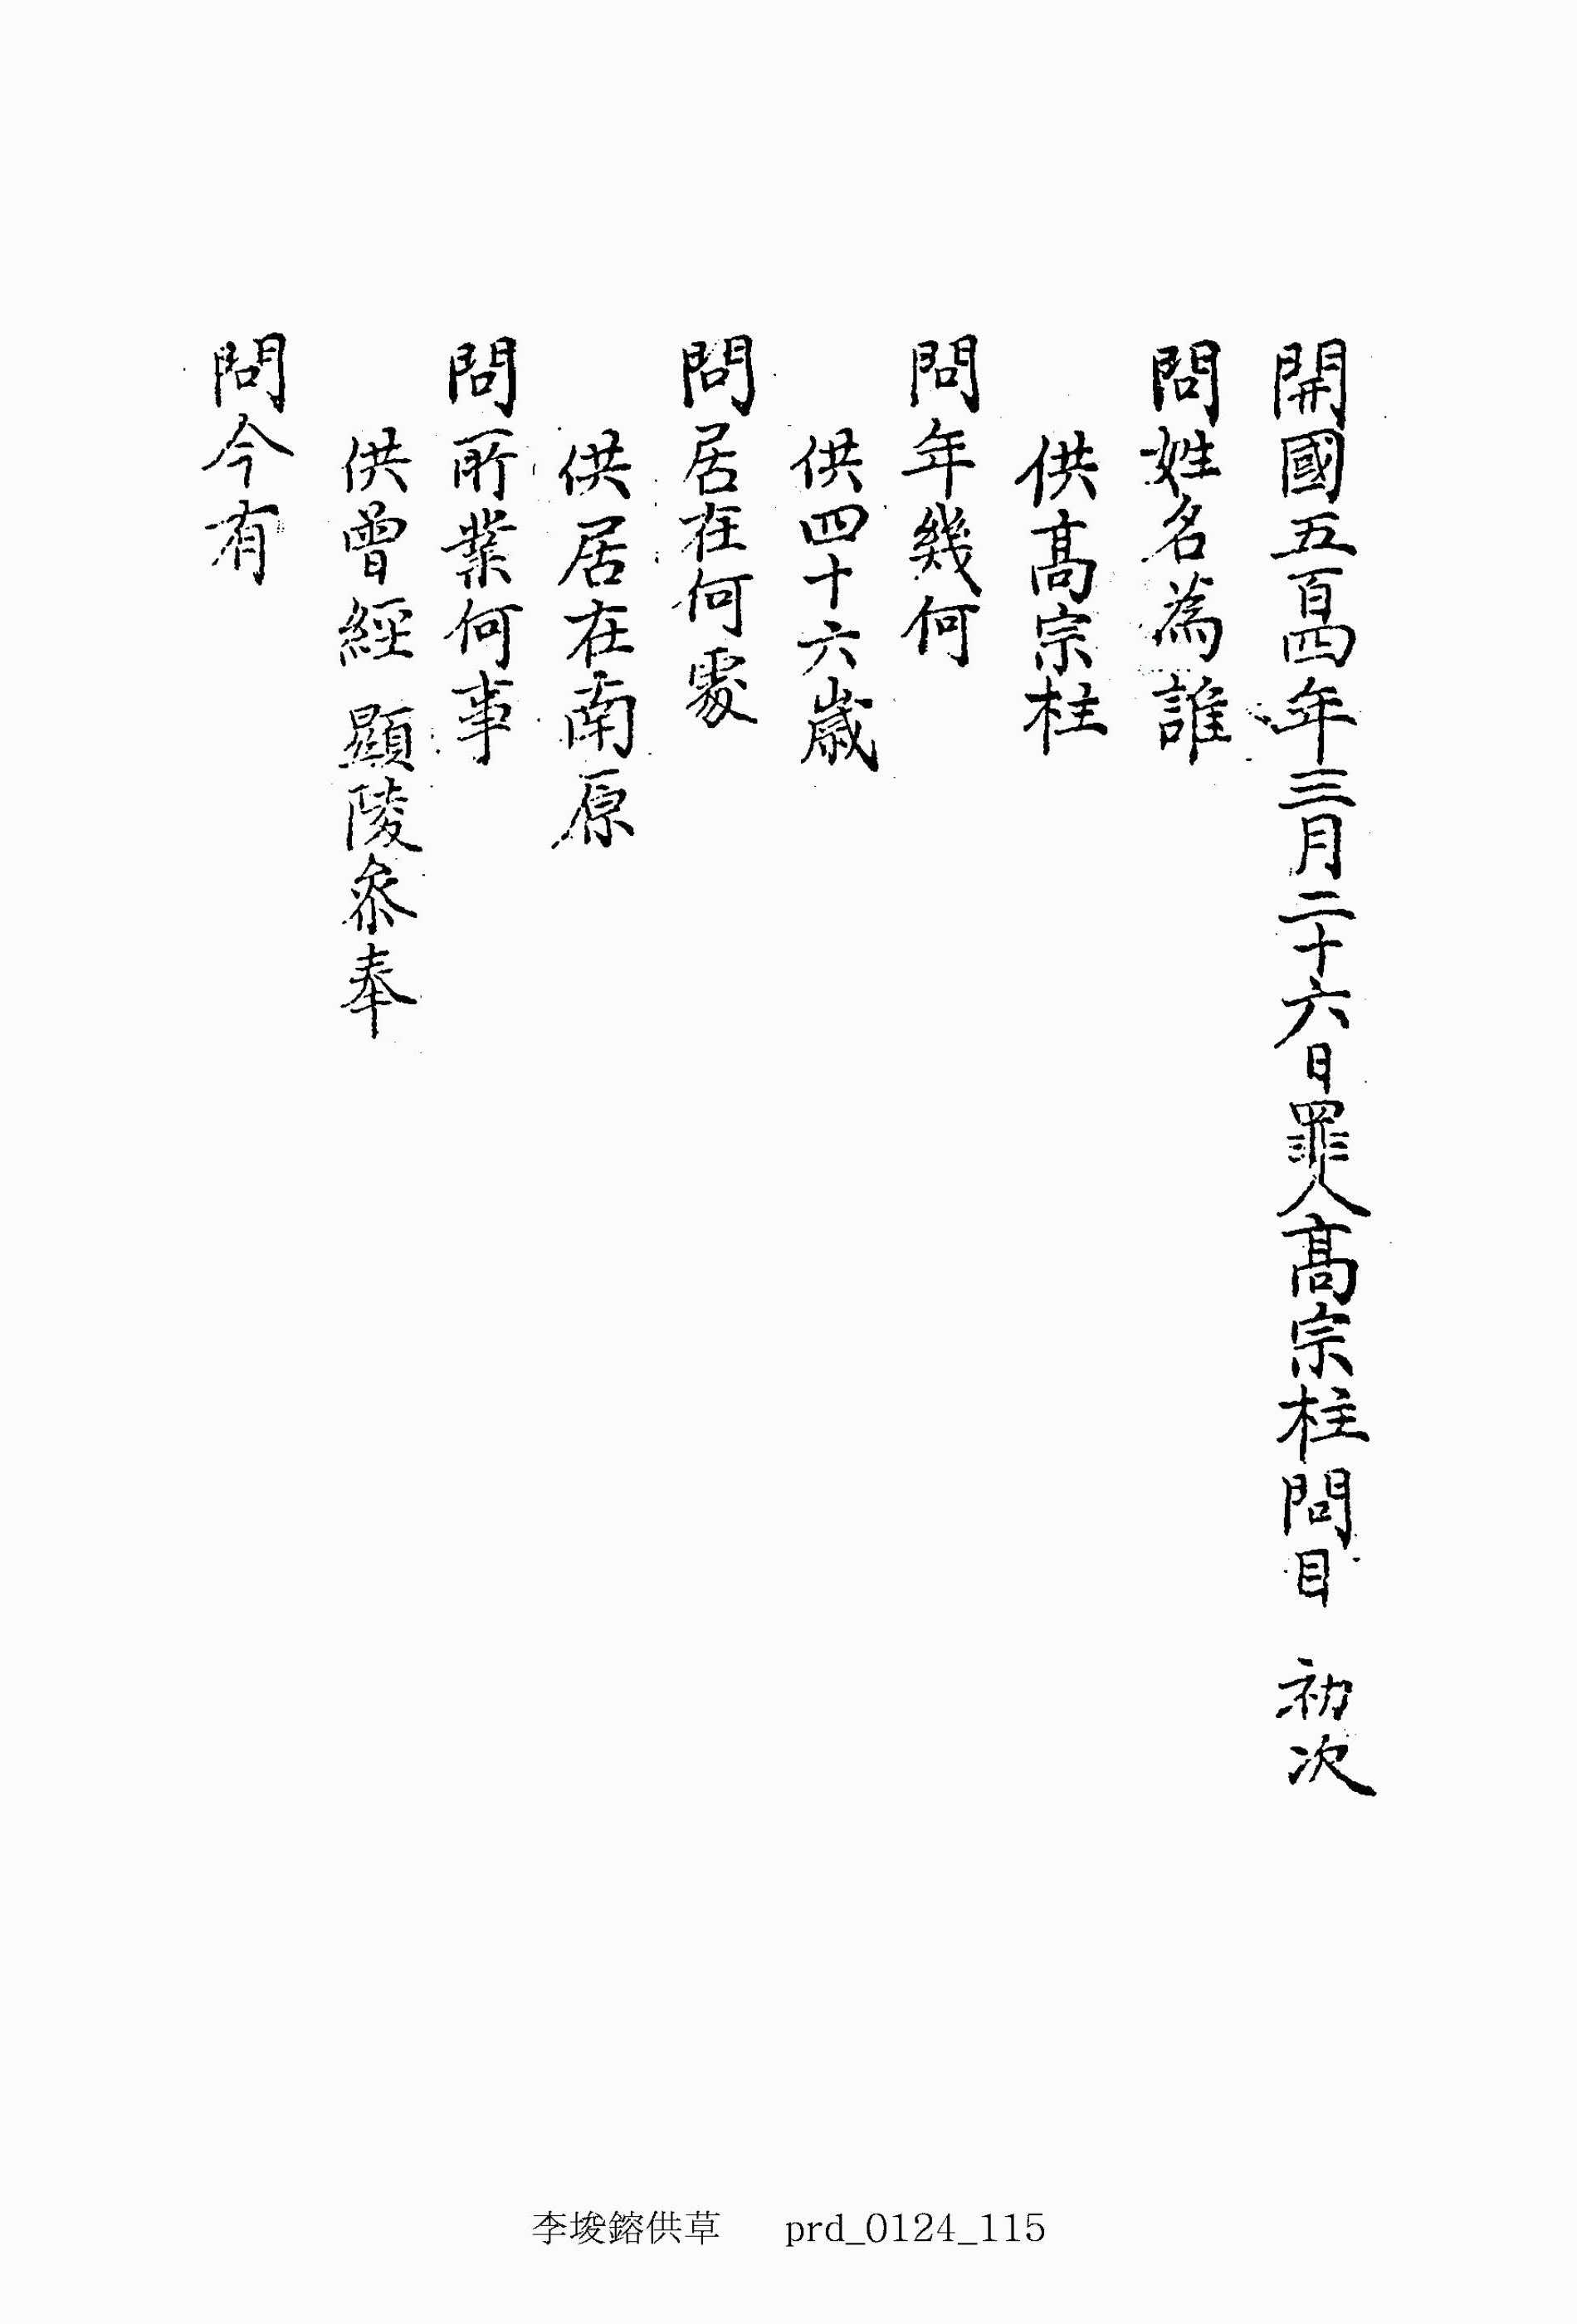 開國五百四年三月二十六日罪人高宗柱問目 初次
問姓名為誰
供高宗柱
問年幾何
供四十六歲
問居在何處
供居在南原
問所業何事
供曾經 顯陵參奉
問今有
李埈鎔供草 prd_0124_115